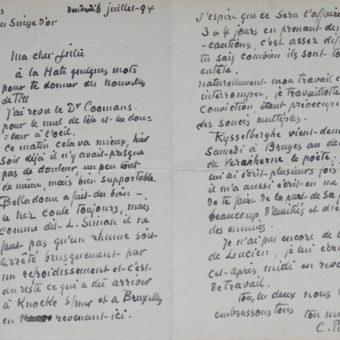 Vendredi 6 juillet-94
du Singe d'or
Ma cher
à la Hate quelques mots
pour te donner des nouvelles
de Titi
J'ai revu le Dr Coomans
pour le mal de tête et la dou-
leur à l'oeil.
ce matin cela va mieux, hier
soir déja il n'y avait presque
pas de douleur, un peu tout
de meme, mais bien supportable.
Belladone a fait du bien —
le nez coule toujours, mais
comme dit L. Simon il ne
faut pas qu'un rhume soit
arrêté brusquement par
un refroidissement et c'est
du reste ce qui a dû arriver
à Knocke s/mer et à Bruxelles
en revenant ici.
J'espère que ce sera l'affaire
3 a 4 jours en prenant des
cautions, c'est assez
tu sais combien ils sont
entêté.
naturellement mon travail
interrompu, je travaillote
conviction étant préoccupé
des soucis multiples.
Rysselberghe vient
Samedi à Bruges
de Veraeherne le poête.
lui ai écrit plusieurs fois
il m'a aussi écrit
de te faire de la part de sa
beaucoup d'amitiés et
des
Je n'ai pas encore de
de Lucien, je lui
cet après midi en
de travail.
tous deux nous
embrassons tous
C. P